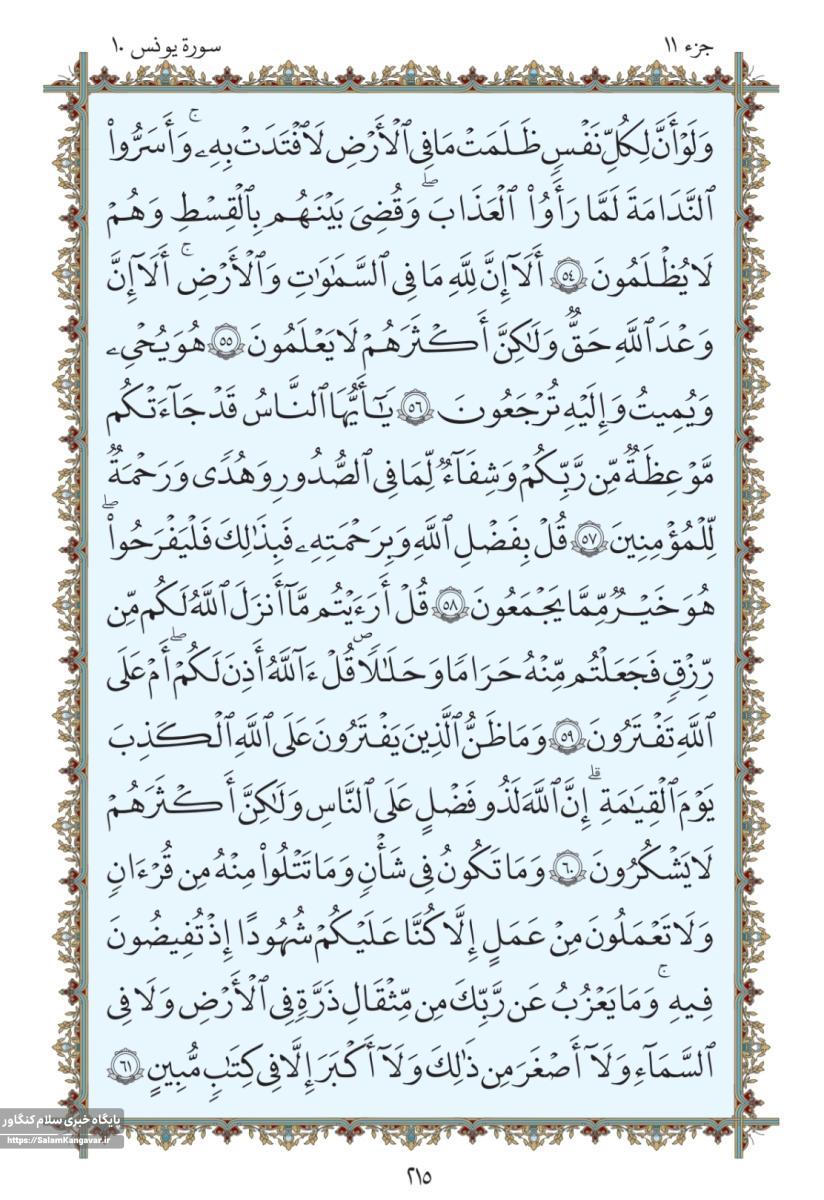 جزء ١١
سورة یونس ١٠
وَلَوْ أَنَّ لِكُلِّ نَفْسٍ ظَلَمَتْ مَا فِي ٱلْأَرْضِ لَٱفْتَدَتْ بِهِۦۚ وَأَسَرُّوا۟
ٱلنَّدَامَةَ لَمَّا رَأَوُا۟ ٱلْعَذَابَۖ وَقُضِيَ بَيْنَهُم بِٱلْقِسْطِ وَهُمْ
لَا يُظْلَمُونَ ٥٤ أَلَآ إِنَّ لِلَّهِ مَا فِي ٱلسَّمَٰوَٰتِ وَٱلْأَرْضِۚ أَلَآ إِنَّ
وَعْدَ ٱللَّهِ حَقٌّ وَلَٰكِنَّ أَكْثَرَهُمْ لَا يَعْلَمُونَ ٥٥ هُوَ يُحْيِۦ
وَيُمِيتُ وَإِلَيْهِ تُرْجَعُونَ ٥٦ يَٰٓأَيُّهَا ٱلنَّاسُ قَدْ جَآءَتْكُم
مَّوْعِظَةٌ مِّن رَّبِّكُمْ وَشِفَآءٌ لِّمَا فِي ٱلصُّدُورِ وَهُدًى وَرَحْمَةٌ
لِّلْمُؤْمِنِينَ ٥٧ قُلْ بِفَضْلِ ٱللَّهِ وَبِرَحْمَتِهِۦ فَبِذَٰلِكَ فَلْيَفْرَحُوا۟ۖ
هُوَ خَيْرٌ مِّمَّا يَجْمَعُونَ ٥٨ قُلْ أَرَءَيْتُم مَّآ أَنزَلَ ٱللَّهُ لَكُم مِّن
رِّزْقٍ فَجَعَلْتُم مِّنْهُ حَرَامًا وَحَلَٰلًا قُلْ ءَآللَّهُ أَذِنَ لَكُمْۖ أَمْ عَلَى
ٱللَّهِ تَفْتَرُونَ ٥٩ وَمَا ظَنُّ ٱلَّذِينَ يَفْتَرُونَ عَلَى ٱللَّهِ ٱلْكَذِبَ
يَوْمَ ٱلْقِيَٰمَةِۗ إِنَّ ٱللَّهَ لَذُو فَضْلٍ عَلَى ٱلنَّاسِ وَلَٰكِنَّ أَكْثَرَهُمْ
لَا يَشْكُرُونَ ٦٠ وَمَا تَكُونُ فِي شَأْنٍ وَمَا تَتْلُوا۟ مِنْهُ مِن قُرْءَانٍ
وَلَا تَعْمَلُونَ مِنْ عَمَلٍ إِلَّا كُنَّا عَلَيْكُمْ شُهُودًا إِذْ تُفِيضُونَ
فِيهِۚ وَمَا يَعْزُبُ عَن رَّبِّكَ مِن مِّثْقَالِ ذَرَّةٍ فِي ٱلْأَرْضِ وَلَا فِي
ٱلسَّمَآءِ وَلَآ أَصْغَرَ مِن ذَٰلِكَ وَلَآ أَكْبَرَ إِلَّا فِي كِتَٰبٍ مُّبِينٍ ٦١
پایگاه خبری سلام کنگاور
https://SalamKangavar.ir
٢١٥